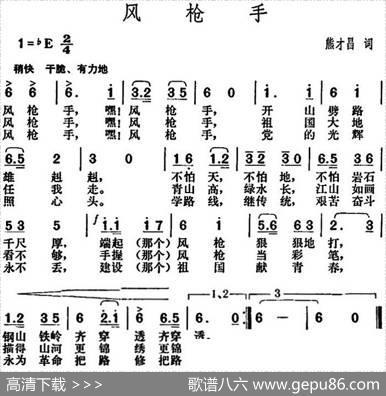 风 枪 手
1=♭E 2/4
熊才昌 词
稍快 干脆、有力地
6 6 6. i 3.2 3 5 6 0 i. i 6 5
风 枪 手, 嘿! 风 枪 手, 开 山 劈 路
风 枪 手, 嘿! 风 枪 手, 祖 国 大 地
风 枪 手, 嘿! 风 枪 手, 党 的 光 辉
6.5 2 3 0 1 6 1.2 3 2 3 0 1 6 5 6
雄 赳 赳, 不怕 天, 不怕 地, 不怕 岩石
任 我 走。 青山 高, 绿水 长, 江山 如画
照 心 头。 学路 线, 继传 统, 艰苦 奋斗
5 3 5 f i.i i 7 6 i 5.6 6 3 2 0
千尺 厚, 端起 (那个) 风 枪 狠 狠地 打,
看不 够, 手握 (那个) 风 枪 当 彩 笔,
永不 丢, 建设 (那个) 祖 国 献 青 春,
1.2 3 5 6 2.i 6 6.5 6. 0 6 – 6 0
1、2 3
钢山 铁岭 齐 穿 透 齐穿 透。
描得 山河 更 锦 绣 更锦
永为 革命 把 路 修 把路
高清下载 >>>
歌谱八六 www.gepu86.com